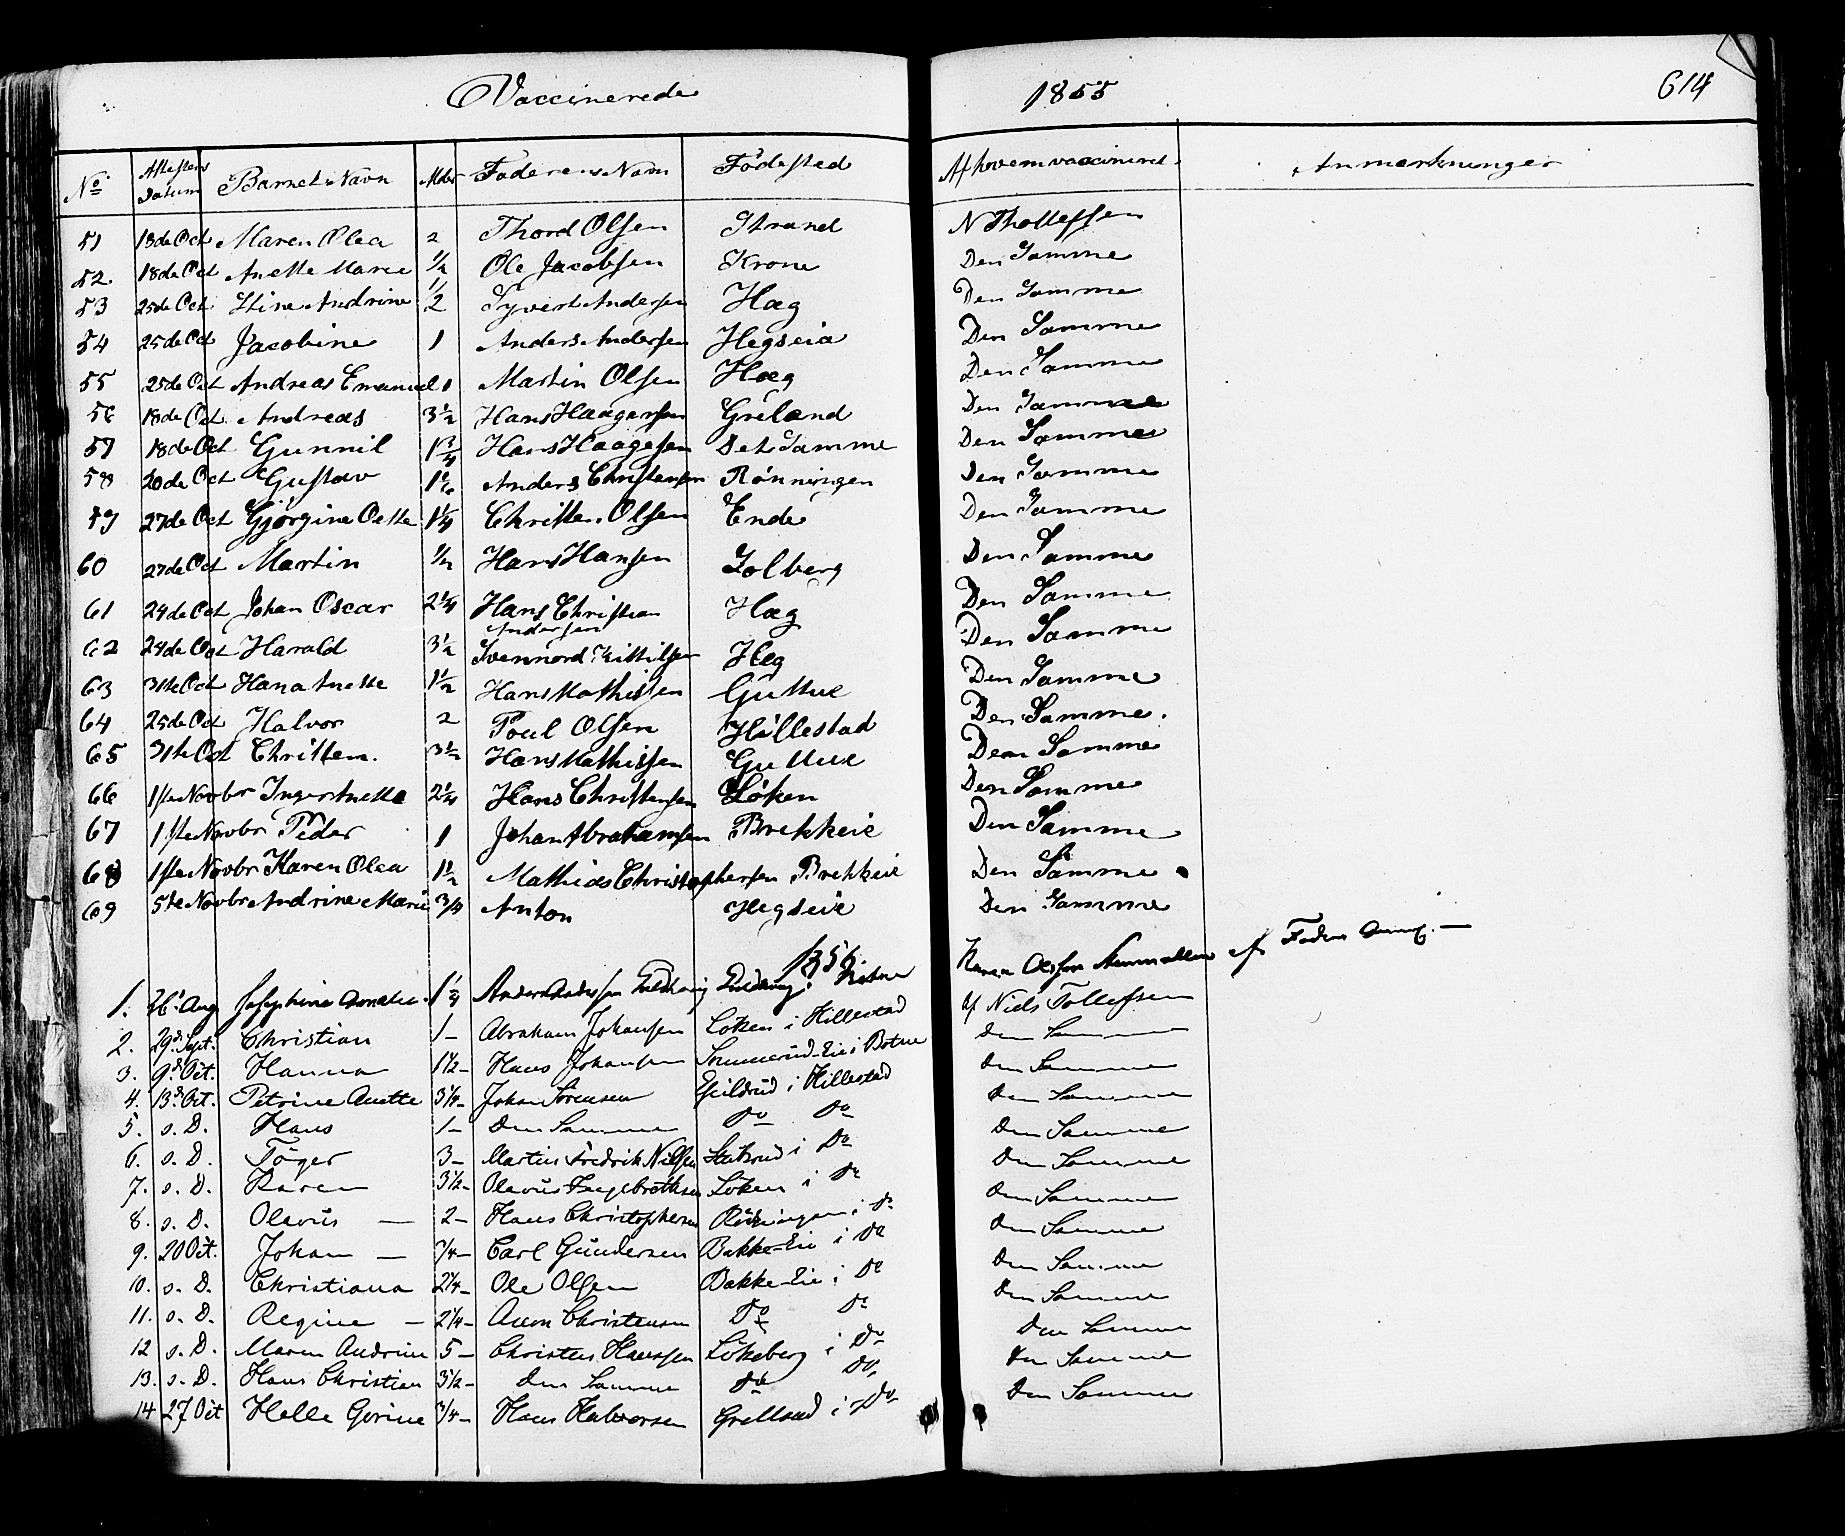 Vaccinerede 1855 614
No Attestens Datum Barnets Navn Alder Faderens Navn Fødested Af hvem vaccineret Anmærkninger
51 13de Oct Maren Olea 2 Thord Olsen Strand N Thollefsen
52. 18de Oct Anette Marie 1/2 Ole Jacobsen Krone Den Samme
53 25de Oct Stine Andrine 1/2 Syvert Andersen Hæg Den Samme
54 25de Oct Jacobine 1 Anders Andersen Hegseia Den Samme
55 25de Oct Andreas Emanuel 1 Martin Olsen Hæg Den Samme
56 18de Oct Andreas 3 1/2 Hans Haagensen Greland Den Samme
57 18de Oct Gunnil 1 3/4 Hans Haagesen Det Samme Den Samme
58 20de Oct Gustav Anders Christensen Rønningen Den Samme
59 27de Oct Gjørgine Oette 1 1/4 Christen Olsen Ende Den Samme
60 27de Oct Martin 1/2 Hans Hansen Solberg Den Samme
61 24de Oct Johan Oscar 2 1/4 Hans Christian Andersen Hæg Den Samme
62 24de Oct Harald 3 1/2 Svennord Kittilsen Heg Den Samme
63 31te Oct Hana Anette 1 1/2 Hans Mathissen Guttue Den Samme
64 25de Oct Halvor 2 Poul Olsen Hillestad Den Samme.
65 31te Oct Christen. 3 1/2 Hans Mathissen Guttue Den Samme
66 1ste Novbr Inger Anette 2 1/4 Hans Christensen Løken Den Samme
67 1ste Novbr Peder 1 Johan Abrahamsen Brekkeie Den Samme
68 1ste Novbr Karen Olea 1 1/2 Mathias Christophersen Brekkeie Den Samme
69 5te Novbr Andrine Marie 3/4 Anton Hegseie Den Samme
1856
1. 26. Aug Josephine 1 1/4 Anders Andersen Botne Karen af Faderen
2. 29d. Sept. Christian 1 – Abraham Johansen Løken i Hillestad af Niels Tollefsen
3. 9d. Oct. Hanna 1 1/2 – Hans Johansen Sommerud-Eie i Botne den Samme
4. 13d. Oct. Petrine Anette 3 1/4 – Johan Sørensen Efildrud i Hillestad den Samme
5. s. D. Hans 1 – den Samme Do Do den Samme
6. s. D. Töger 3 – Martin Fredrik Nilsen i Do den Samme
7. s. D. Karen 3 1/2 – Olavus Engebretsen Löken i Do den Samme
8. s. D. Olavus – 2 – Hans Christophersen Rönningen i Do den Samme
9. 20 Oct. Johan – 3/4 – Carl Gundersen Bakke-Eie i Do den Samme
10. s. D. Christiana 2 1/4 – Ole Olsen Bakke-Eie i Do den Samme
11. s. D. Regine – 2 1/4 – Aron Christensen Do Do den Samme
12 s. D. Maren Andrine 5 – Christen Hanssen Lökeberg i Do den Samme
13. s. D. Hans Christian 3 1/2 – den Samme Do Do den Samme
14 27 Oct Helle Gorine 3/4 – Hans Halvorsen Grelland i Do den Samme